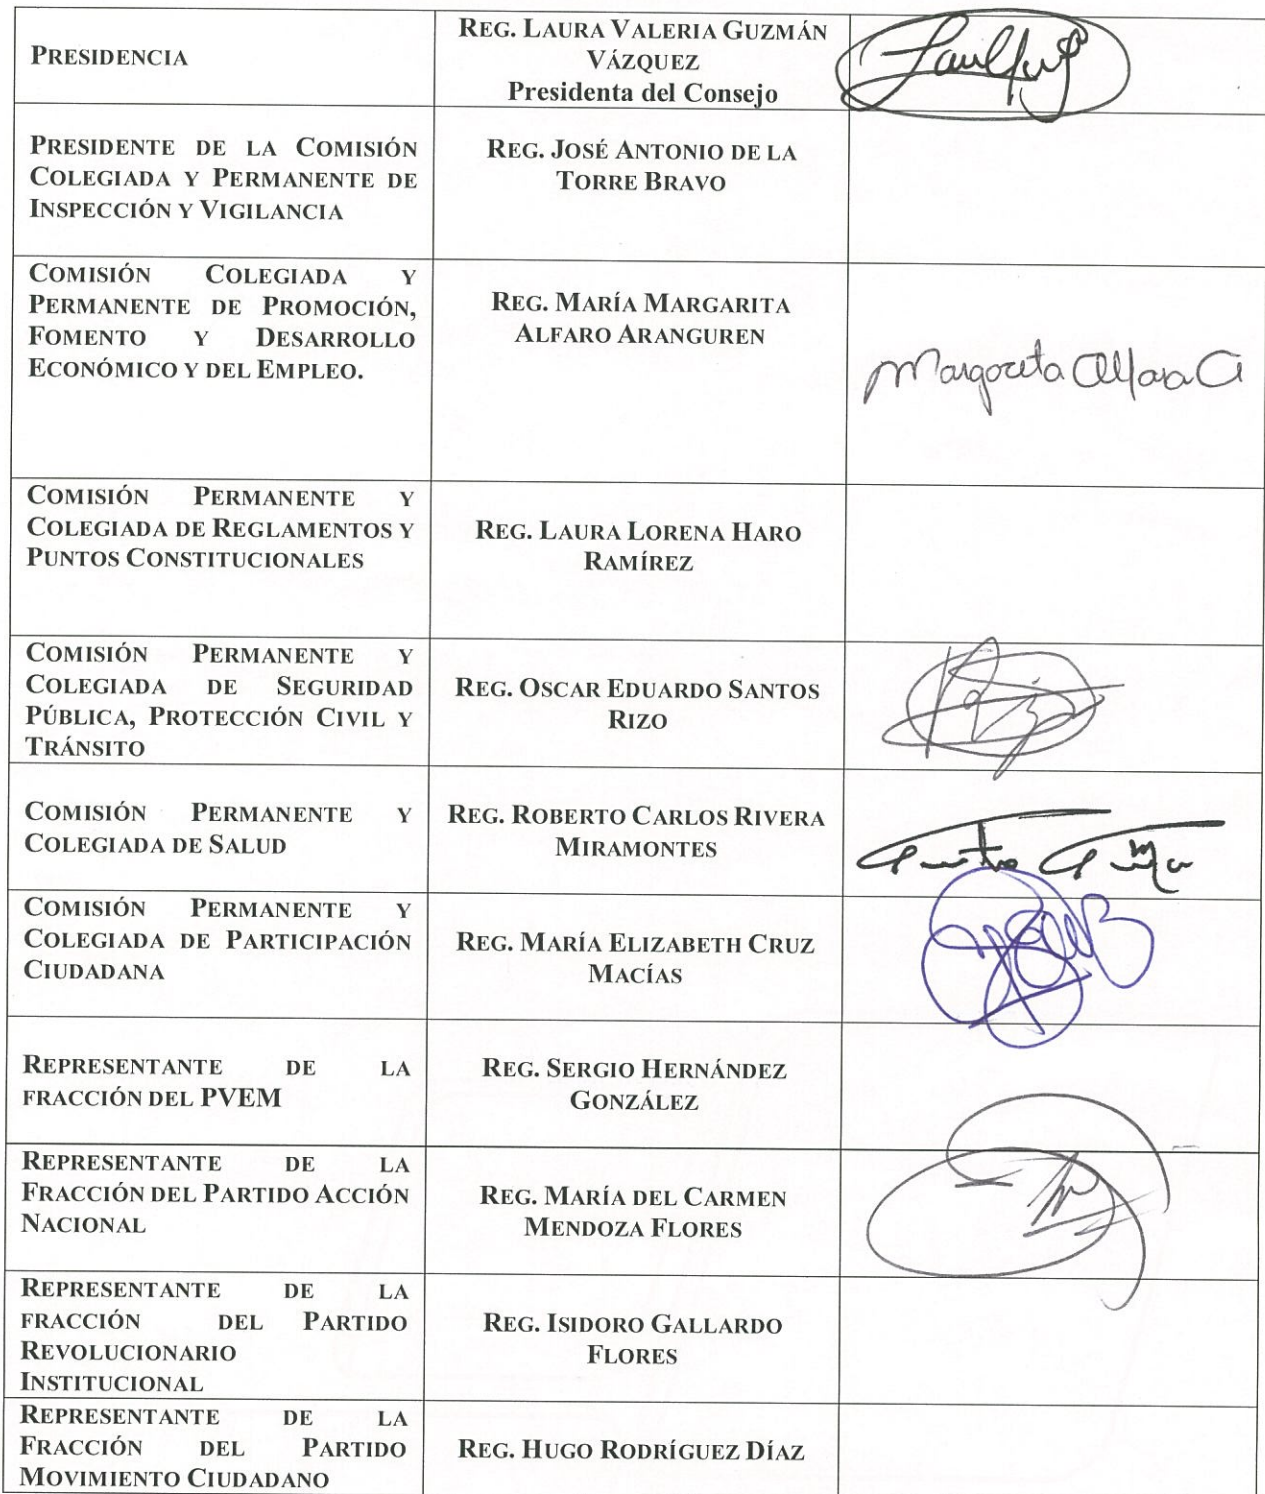 PRESIDENCIA
REG. LAURA VALERIA GUZMÁN
VÁZQUEZ
Presidenta del Consejo
PRESIDENTE DE LA COMISIÓN
COLEGIADA Y PERMANENTE DE
INSPECCIÓN Y VIGILANCIA
REG. JOSÉ ANTONIO DE LA
TORRE BRAVO
COMISIÓN COLEGIADA Y
PERMANENTE DE PROMOCIÓN,
FOMENTO Y DESARROLLO
ECONÓMICO Y DEL EMPLEO.
REG. MARÍA MARGARITA
ALFARO ARANGUREN
Margarita Alfaro A
COMISIÓN PERMANENTE Y
COLEGIADA DE REGLAMENTOS Y
PUNTOS CONSTITUCIONALES
REG. LAURA LORENA HARO
RAMÍREZ
COMISIÓN PERMANENTE Y
COLEGIADA DE SEGURIDAD
PÚBLICA, PROTECCIÓN CIVIL Y
TRÁNSITO
REG. OSCAR EDUARDO SANTOS
RIZO
COMISIÓN PERMANENTE Y
COLEGIADA DE SALUD
REG. ROBERTO CARLOS RIVERA
MIRAMONTES
COMISIÓN PERMANENTE Y
COLEGIADA DE PARTICIPACIÓN
CIUDADANA
REG. MARÍA ELIZABETH CRUZ
MACÍAS
REPRESENTANTE DE LA
FRACCIÓN DEL PVEM
REG. SERGIO HERNÁNDEZ
GONZÁLEZ
REPRESENTANTE DE LA
FRACCIÓN DEL PARTIDO ACCIÓN
NACIONAL
REG. MARÍA DEL CARMEN
MENDOZA FLORES
REPRESENTANTE DE LA
FRACCIÓN DEL PARTIDO
REVOLUCIONARIO
INSTITUCIONAL
REG. ISIDORO GALLARDO
FLORES
REPRESENTANTE DE LA
FRACCIÓN DEL PARTIDO
MOVIMIENTO CIUDADANO
REG. HUGO RODRÍGUEZ DÍAZ